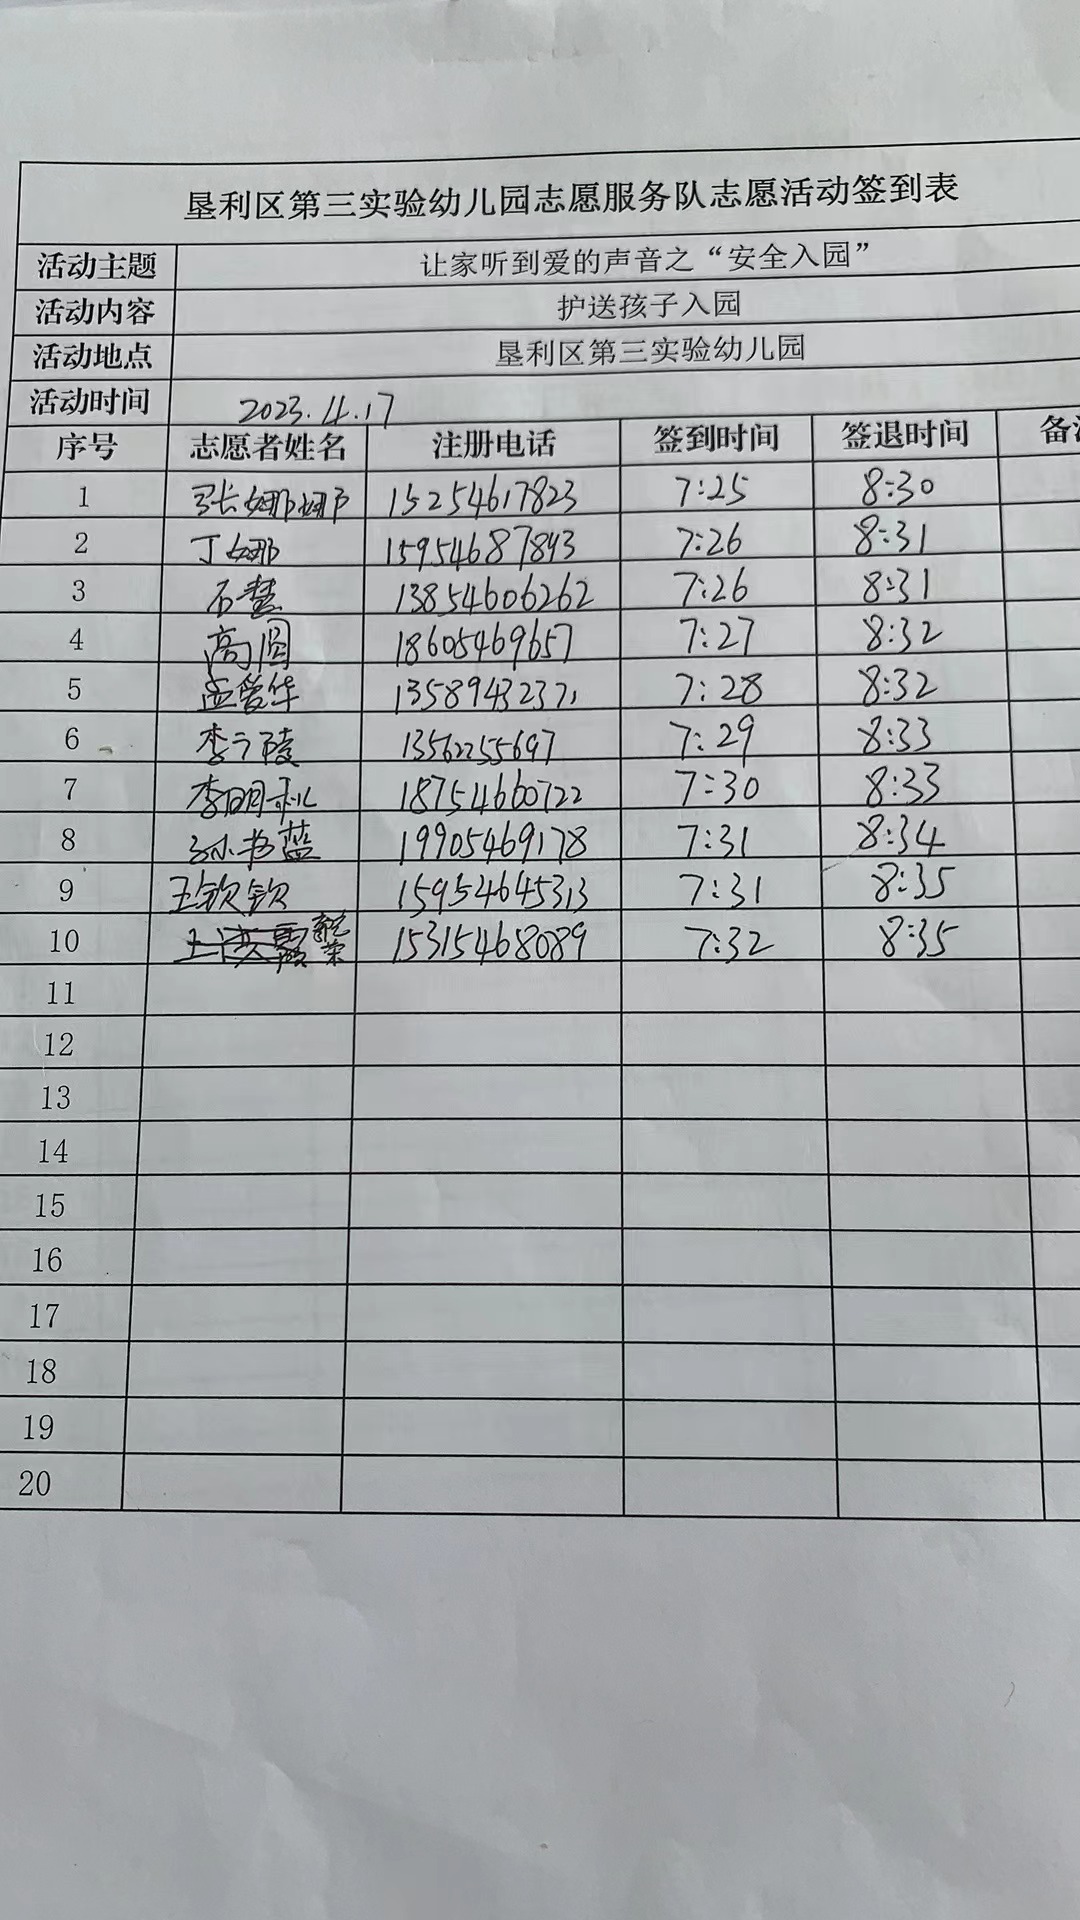 垦利区第三实验幼儿园志愿服务队志愿活动签到表
活动主题 让家听到爱的声音之“安全入园”
活动内容 护送孩子入园
活动地点 垦利区第三实验幼儿园
活动时间 2023.4.17
序号 志愿者姓名 注册电话 签到时间 签退时间
1 张娜娜 15254617823 7:25 8:30
2 丁娜 15954687893 7:26 8:31
3 石慧 13854606262 7:26 8:31
4 高圆 18605469657 7:27 8:32
5 孟爱华 13589432371 7:28 8:32
6 李广陵 13562255697 7:29 8:33
7 李明利 18754660722 7:30 8:33
8 孙书蓝 19905469178 7:31 8:34
9 王钦钦 15954645313 7:31 8:35
10 15315468089 7:32 8:35
11
12
13
14
15
16
17
18
19
20